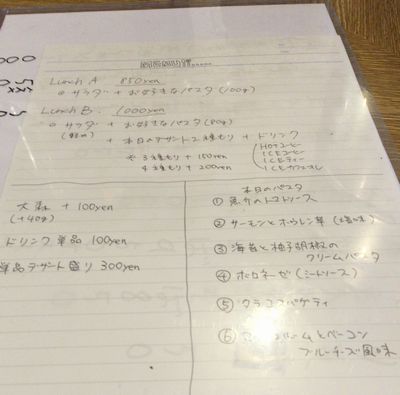 MENU
Lunch A 850yen
○ サラダ + お好きなパスタ(100g)
Lunch B. 1000yen
○ サラダ + お好きなパスタ(80g)
+ 本日のデザート2種もり + ドリンク
※ 3種もり + 150yen
4種もり + 200yen
HOTコーヒー
ICEコーヒー
ICEティー
ICEカフェオレ
大盛 + 100yen
(+40g)
ドリンク単品 100yen
単品デザート盛り 300yen
本日のパスタ
① 魚介のトマトソース
② サーモンとホウレン草 (塩味)
③ 海苔と柚子胡椒の
クリームパスタ
④ ボロネーゼ (ミートソース)
⑤ タラコスパゲティ
⑥ ームとベーコン
ブルーチーズ風味